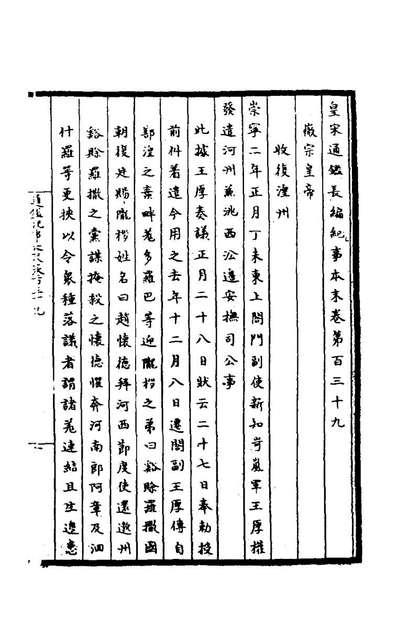 皇宋通鑑長編紀事本末卷第百三十九
徽宗皇帝
收復湟州
崇寧二年正月丁未東上閤門副使新知岢嵐軍王厚權
發遣河州兼洮西沿邊安撫司公事
此據王厚奏議正月二十八日狀云二十七日奉勅授
前件差遣今用之去年十二月八日遷閤副王厚傳自
鄯湟之棄畔羌多羅巴等迎隴拶之弟曰谿賒羅撒國
朝復建賜隴拶姓名曰趙懷德拜河西節度使還邈州
谿賒羅撒之黨謀掩殺之懷德懼奔河南郎阿章及
什羅等更挾以令衆種落議者謂諸羌連結且生邊患